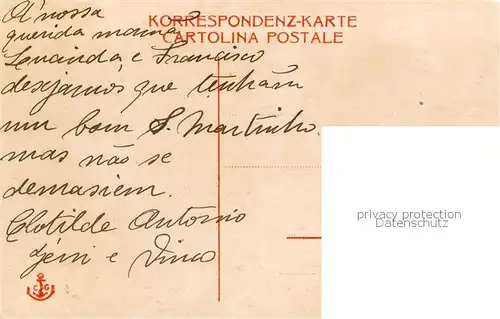 Á nossa
KORRESPONDENZ-KARTE
querida mamã
CARTOLINA POSTALE
Fernanda, e Francisco
desejamos que tenham
um bom S. Martinho.
mas não se
demasiem.
Clotilde Antonio
e
privacy protection
C G